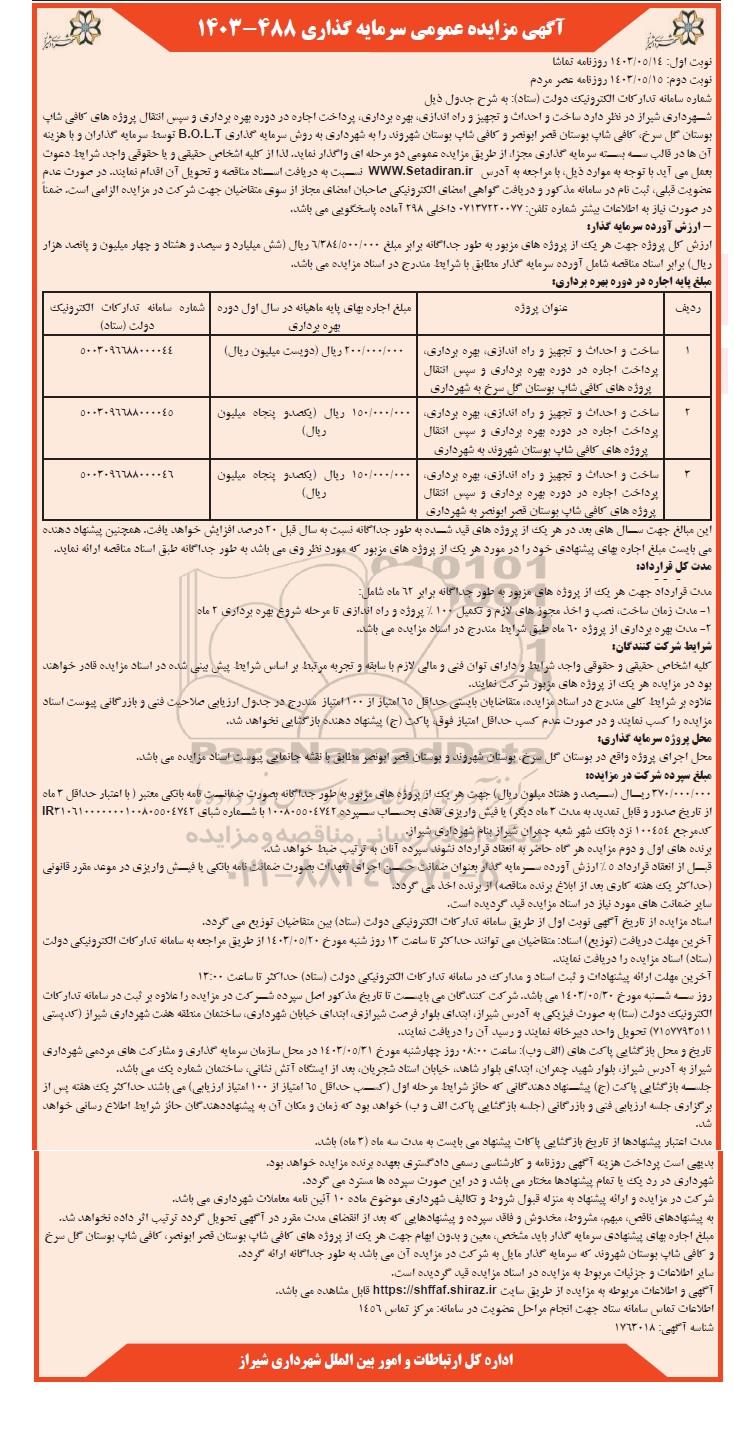 آگهی مزایده عمومی سرمایه گذاری ۴۸۸-۱۴۰۳
نوبت اول: ۱۴۰۳/۰۵/۱۴ روزنامه تماشا
نوبت دوم: ۱۴۰۳/۰۵/۱۵ روزنامه عصر مردم
شماره سامانه تدارکات الکترونیک دولت (ستاد): به شرح جدول ذیل
شهرداری شیراز در نظر دارد ساخت و احداث و تجهیز و راه اندازی، بهره برداری، پرداخت اجاره در دوره بهره برداری و سپس انتقال پروژه های کافی شاپ
بوستان گل سرخ، کافی شاپ بوستان قصر ابونصر و کافی شاپ بوستان شهروند را به شهرداری به روش سرمایه گذاری B.O.L.T توسط سرمایه گذاران و با هزینه
آن ها در قالب سه بسته سرمایه گذاری مجزا، از طریق مزایده عمومی دو مرحله ای واگذار نماید. لذا از کلیه اشخاص حقیقی و یا حقوقی واجد شرایط دعوت
بعمل می آید با توجه به موارد ذیل، با مراجعه به آدرس WWW.Setadiran.ir نسبت به دریافت اسناد مناقصه و تحویل آن اقدام نمایند. در صورت عدم
عضویت قبلی، ثبت نام در سامانه مذکور و دریافت گواهی امضای الکترونیکی صاحبان امضای مجاز از سوی متقاضیان جهت شرکت در مزایده الزامی است. ضمناً
در صورت نیاز به اطلاعات بیشتر شماره تلفن: ۰۷۱۳۷۲۲۰۰۷۷ داخلی ۲۹۸ آماده پاسخگویی می باشد.
– ارزش آورده سرمایه گذار:
ارزش کل پروژه جهت هر یک از پروژه های مزبور به طور جداگانه برابر مبلغ ۶/۳۸۴/۵۰۰/۰۰۰ ریال (شش میلیارد و سیصد و هشتاد و چهار میلیون و پانصد هزار
ریال) برابر اسناد مناقصه شامل آورده سرمایه گذار مطابق با شرایط مندرج در اسناد مزایده می باشد.
مبلغ پایه اجاره در دوره بهره برداری:
ردیف عنوان پروژه مبلغ اجاره بهای پایه ماهیانه در سال اول دوره بهره برداری شماره سامانه تدارکات الکترونیک دولت (ستاد)
۱ ساخت و احداث و تجهیز و راه اندازی، بهره برداری، ۲۰۰/۰۰۰/۰۰۰ ریال (دویست میلیون ریال) ۵۰۰۳۰۹۶۶۸۸۰۰۰۰۴۴
پرداخت اجاره در دوره بهره برداری و سپس انتقال
پروژه های کافی شاپ بوستان گل سرخ به شهرداری
۲ ساخت و احداث و تجهیز و راه اندازی، بهره برداری، ۱۵۰/۰۰۰/۰۰۰ ریال (یکصدو پنجاه میلیون ریال) ۵۰۰۳۰۹۶۶۸۸۰۰۰۰۴۵
پرداخت اجاره در دوره بهره برداری و سپس انتقال
پروژه های کافی شاپ بوستان شهروند به شهرداری
۳ ساخت و احداث و تجهیز و راه اندازی، بهره برداری، ۱۵۰/۰۰۰/۰۰۰ ریال (یکصدو پنجاه میلیون ریال) ۵۰۰۳۰۹۶۶۸۸۰۰۰۰۴۶
پرداخت اجاره در دوره بهره برداری و سپس انتقال
پروژه های کافی شاپ بوستان قصر ابونصر به شهرداری
این مبالغ جهت سال های بعد در هر یک از پروژه های قید شده به طور جداگانه نسبت به سال قبل ۲۰ درصد افزایش خواهد یافت. همچنین پیشنهاد دهنده
می بایست مبلغ اجاره بهای پیشنهادی خود را در مورد هر یک از پروژه های مزبور که مورد نظر وی می باشد به طور جداگانه طبق اسناد مناقصه ارائه نماید.
مدت کل قرارداد:
مدت قرارداد جهت هر یک از پروژه های مزبور به طور جداگانه برابر ۶۲ ماه شامل:
۱- مدت زمان ساخت، نصب و اخذ مجوز های لازم و تکمیل ۱۰۰ ٪ پروژه و راه اندازی تا مرحله شروع بهره برداری ۲ ماه
۲- مدت بهره برداری از پروژه ۶۰ ماه طبق شرایط مندرج در اسناد مزایده می باشد.
شرایط شرکت کنندگان:
کلیه اشخاص حقیقی و حقوقی واجد شرایط و دارای توان فنی و مالی لازم با سابقه و تجربه مرتبط بر اساس شرایط پیش بینی شده در اسناد مزایده قادر خواهند
بود در مزایده هر یک از پروژه های مزبور شرکت نمایند.
علاوه بر شرایط کلی مندرج در اسناد مزایده، متقاضایان بایستی حداقل ۶۵ امتیاز از ۱۰۰ امتیاز مندرج در جدول ارزیابی صلاحیت فنی و بازرگانی پیوست اسناد
مزایده را کسب نمایند و در صورت عدم کسب حداقل امتیاز فوق، پاکت (ج) پیشنهاد دهنده بازگشایی نخواهد شد.
محل پروژه سرمایه گذاری:
محل اجرای پروژه واقع در بوستان گل سرخ، بوستان شهروند و بوستان قصر ابونصر مطابق با نقشه جانمایی پیوست اسناد مزایده می باشد.
مبلغ سپرده شرکت در مزایده:
۳۷۰/۰۰۰/۰۰۰ ریال (سیصد و هفتاد میلون ریال) جهت هر یک از پروژه های مزبور به طور جداگانه بصورت ضمانت نامه بانکی معتبر ( با اعتبار حداقل ۳ ماه
از تاریخ صدور و قابل تمدید به مدت ۳ ماه دیگر) یا فیش واریزی نقدی بحساب سپرده ۱۰۰۸۰۵۵۰۴۷۴۲ با شماره شبای IR۳۱۰۶۱۰۰۰۰۰۰۰۱۰۰۸۰۵۵۰۴۷۴۲
کدمرجع ۱۰۰۴۵۴ نزد بانک شهر شعبه چمران شیراز بنام شهرداری شیراز.
برنده های اول و دوم مزایده هر گاه حاضر به انعقاد قرارداد نشوند سپرده آنان به ترتیب ضبط خواهد شد.
قبل از انعقاد قرارداد ۵ ٪ ارزش آورده سرمایه گذار بعنوان ضمانت حسن اجرای تعهدات بصورت ضمانت نامه بانکی یا فیش واریزی در موعد مقرر قانونی
(حداکثر یک هفته کاری بعد از ابلاغ برنده مناقصه) از برنده اخذ می گردد.
سایر ضمانت های مورد نیاز در اسناد مزایده قید گردیده است.
اسناد مزایده از تاریخ آگهی نوبت اول از طریق سامانه تدارکات الکترونیکی دولت (ستاد) بین متقاضیان توزیع می گردد.
آخرین مهلت دریافت (توزیع) اسناد: متقاضیان می توانند حداکثر تا ساعت ۱۳ روز شنبه مورخ ۱۴۰۳/۰۵/۲۰ از طریق مراجعه به سامانه تدارکات الکترونیکی دولت
(ستاد) اسناد مزایده را دریافت نمایند.
آخرین مهلت ارائه پیشنهادات و ثبت اسناد و مدارک در سامانه تدارکات الکترونیکی دولت (ستاد) حداکثر تا ساعت ۱۳:۰۰
روز سه شنبه مورخ ۱۴۰۳/۰۵/۳۰ می باشد. شرکت کنندگان می بایست تا تاریخ مذکور اصل سپرده شرکت در مزایده را علاوه بر ثبت در سامانه تدارکات
الکترونیک دولت (ستا) به صورت فیزیکی به آدرس شیراز، ابتدای بلوار فرصت شیرازی، ابتدای خیابان شهرداری، ساختمان منطقه هفت شهرداری شیراز (کدپستی
۷۱۵۷۷۹۳۵۱۱) تحویل واحد دبیرخانه نمایند و رسید آن را دریافت نمایند.
تاریخ و محل بازگشایی پاکت های (الف وب): ساعت ۰۸:۰۰ روز چهارشنبه مورخ ۱۴۰۳/۰۵/۳۱ در محل سازمان سرمایه گذاری و مشارکت های مردمی شهرداری
شیراز به آدرس شیراز، بلوار شهید چمران، ابتدای بلوار شاهد، خیابان استاد شجریان، بعد از ایستگاه آتش نشانی، ساختمان شماره یک می باشد.
جلسه بازگشایی پاکت (ج) پیشنهاد دهندگانی که حائز شرایط مرحله اول (کسب حداقل ۶۵ امتیاز از ۱۰۰ امتیاز ارزیابی) می باشند حداکثر یک هفته پس از
برگزاری جلسه ارزیابی فنی و بازرگانی (جلسه بازگشایی پاکت الف و ب) خواهد بود که زمان و مکان آن به پیشنهاددهندگان حائز شرایط اطلاع رسانی خواهد
شد.
مدت اعتبار پیشنهادها از تاریخ بازگشایی پاکات پیشنهاد می بایست به مدت سه ماه (۳ ماه) باشد.
بدیهی است پرداخت هزینه آگهی روزنامه و کارشناسی رسمی دادگستری بعهده برنده مزایده خواهد بود.
شهرداری در رد یک یا تمام پیشنهادها مختار می باشد و در این صورت سپرده ها مسترد می گردد.
شرکت در مزایده و ارائه پیشنهاد به منزله قبول شروط و تکالیف شهرداری موضوع ماده ۱۰ آئین نامه معاملات شهرداری می باشد.
به پیشنهادهای ناقص، مبهم، مشروط، مخدوش و فاقد سپرده و پیشنهادهایی که بعد از انقضای مدت مقرر در آگهی تحویل گردد ترتیب اثر داده نخواهد شد.
مبلغ اجاره بهای پیشنهادی سرمایه گذار باید مشخص، معین و بدون ابهام جهت هر یک از پروژه های کافی شاپ بوستان قصر ابونصر، کافی شاپ بوستان گل سرخ
و کافی شاپ بوستان شهروند که سرمایه گذار مایل به شرکت در مزایده آن می باشد به طور جداگانه ارائه گردد.
سایر اطلاعات و جزئیات مربوط به مزایده در اسناد مزایده قید گردیده است.
آگهی و اطلاعات مربوطه به مزایده از طریق سایت https://shffaf.shiraz.ir قابل مشاهده می باشد.
اطلاعات تماس سامانه ستاد جهت انجام مراحل عضویت در سامانه: مرکز تماس ۱۴۵۶
شناسه آگهی: ۱۷۶۳۰۱۸
اداره کل ارتباطات و امور بین الملل شهرداری شیراز
ParsNamadData
۰۲۱-۸۸۳۴۹۶۷۰-۵